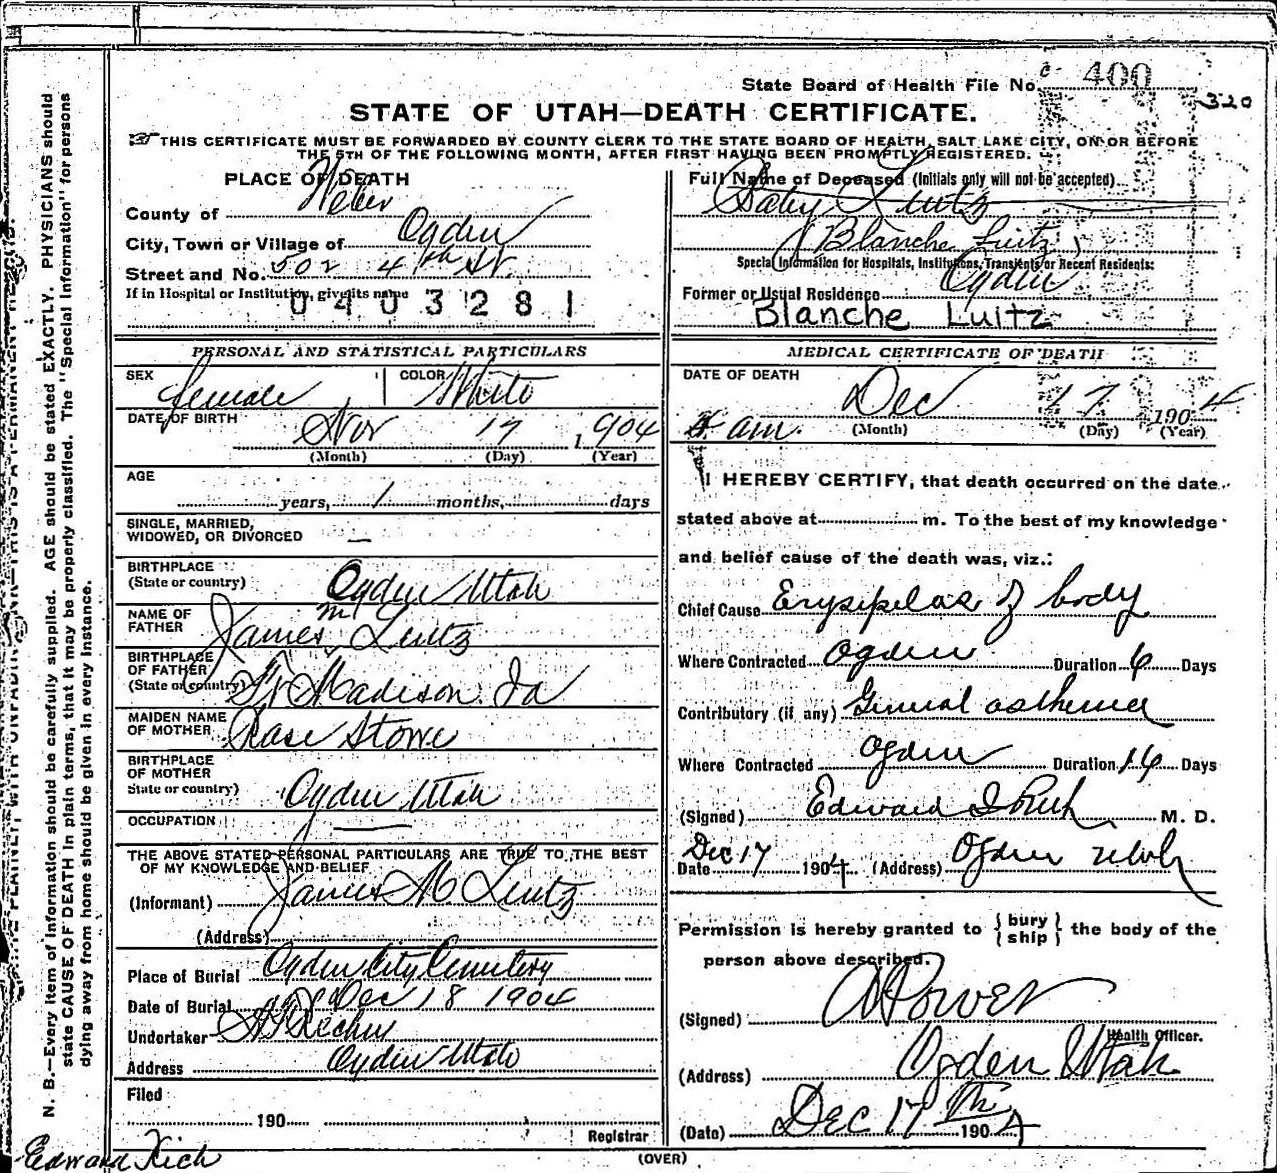 State Board of Health File No. c- 400
320
STATE OF UTAH—DEATH CERTIFICATE.
THIS CERTIFICATE MUST BE FORWARDED BY COUNTY CLERK TO THE STATE BOARD OF HEALTH, SALT LAKE CITY, ON OR BEFORE
THE 5TH OF THE FOLLOWING MONTH, AFTER FIRST HAVING BEEN PROMPTLY REGISTERED.
PLACE OF DEATH
County of Weber
City, Town or Village of Ogden
Street and No. 502 4th St.
If in Hospital or Institution, give its name
0403281
Full Name of Deceased (Initials only will not be accepted)
Baby Luitz
(Blanche Luitz)
Special Information for Hospitals, Institutions, Transients or Recent Residents:
Former or Usual Residence Ogden
Blanche Luitz
PERSONAL AND STATISTICAL PARTICULARS
SEX female COLOR White
DATE OF BIRTH Nov 17 1904
(Month) (Day) (Year)
AGE
years, 1 months, days
SINGLE, MARRIED,
WIDOWED, OR DIVORCED —
BIRTHPLACE
(State or country) Ogden Utah
NAME OF
FATHER James M Luitz
BIRTHPLACE
OF FATHER
(State or country) Ft Madison Ia
MAIDEN NAME
OF MOTHER Rose Stowe
BIRTHPLACE
OF MOTHER
State or country) Ogden Utah
OCCUPATION —
THE ABOVE STATED PERSONAL PARTICULARS ARE TRUE TO THE BEST
OF MY KNOWLEDGE AND BELIEF
(Informant) James M Luitz
(Address)
Place of Burial Ogden City Cemetery
Date of Burial Dec 18 1904
Undertaker
Address Ogden Utah
Filed
190
Registrar
MEDICAL CERTIFICATE OF DEATH
DATE OF DEATH
Dec 17 1904
am. (Month) (Day) (Year)
I HEREBY CERTIFY, that death occurred on the date
stated above at m. To the best of my knowledge
and belief cause of the death was, viz.:
Chief Cause Erysipelas of body
Where Contracted Ogden Duration 6 Days
Contributory (if any) General asthenia
Where Contracted Ogden Duration 14 Days
(Signed) Edward I Rich M. D.
Date Dec 17 1904 (Address) Ogden Utah
Permission is hereby granted to {bury
ship} the body of the
person above described.
(Signed) A Power
Health Officer.
(Address) Ogden Utah
(Date) Dec 17th 1904
(OVER)
N. B.—Every item of information should be carefully supplied. AGE should be stated EXACTLY. PHYSICIANS should
state CAUSE OF DEATH in plain terms, that it may be properly classified. The "Special Information" for persons
dying away from home should be given in every instance.
Edward Rich